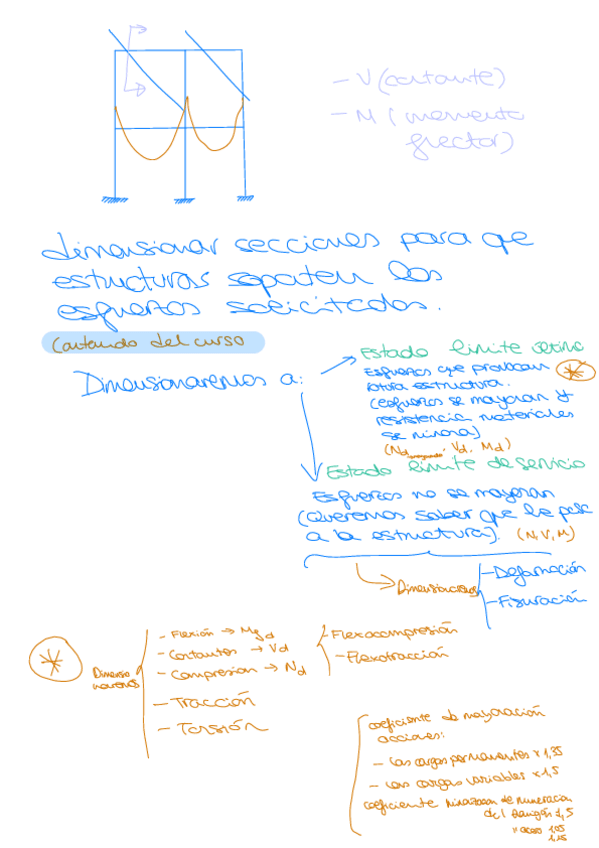 - V (cortante)
- M (momento
flector)
dimensionar secciones para que
estructuras soporten los
esfuerzos solicitados.
Contenido del curso
Dimensionaremos a:
Estado límite último
Esfuerzos que provocan
rotura estructura.
(esfuerzos se mayoran y
resistencia materiales
se minora)
(Nd, Vd, Md)
Estado límite de servicio
Esfuerzos no se mayoran
(Queremos saber que le pasa
a la estructura). (N, V, M)
Dimensionamos
- Deformación
- Fisuración
Dimensio
naremos
- Flexión → Md
- Cortantes → Vd
- Compresión → Nd
- Tracción
- Torsión
- Flexocompresión
- Flexotracción
coeficiente de mayoración
acciones:
- Las cargas permanentes x 1,35
- Las cargas variables x 1,5
coeficiente de minoración
del hormigón 1,5
" acero 1,05
1,15